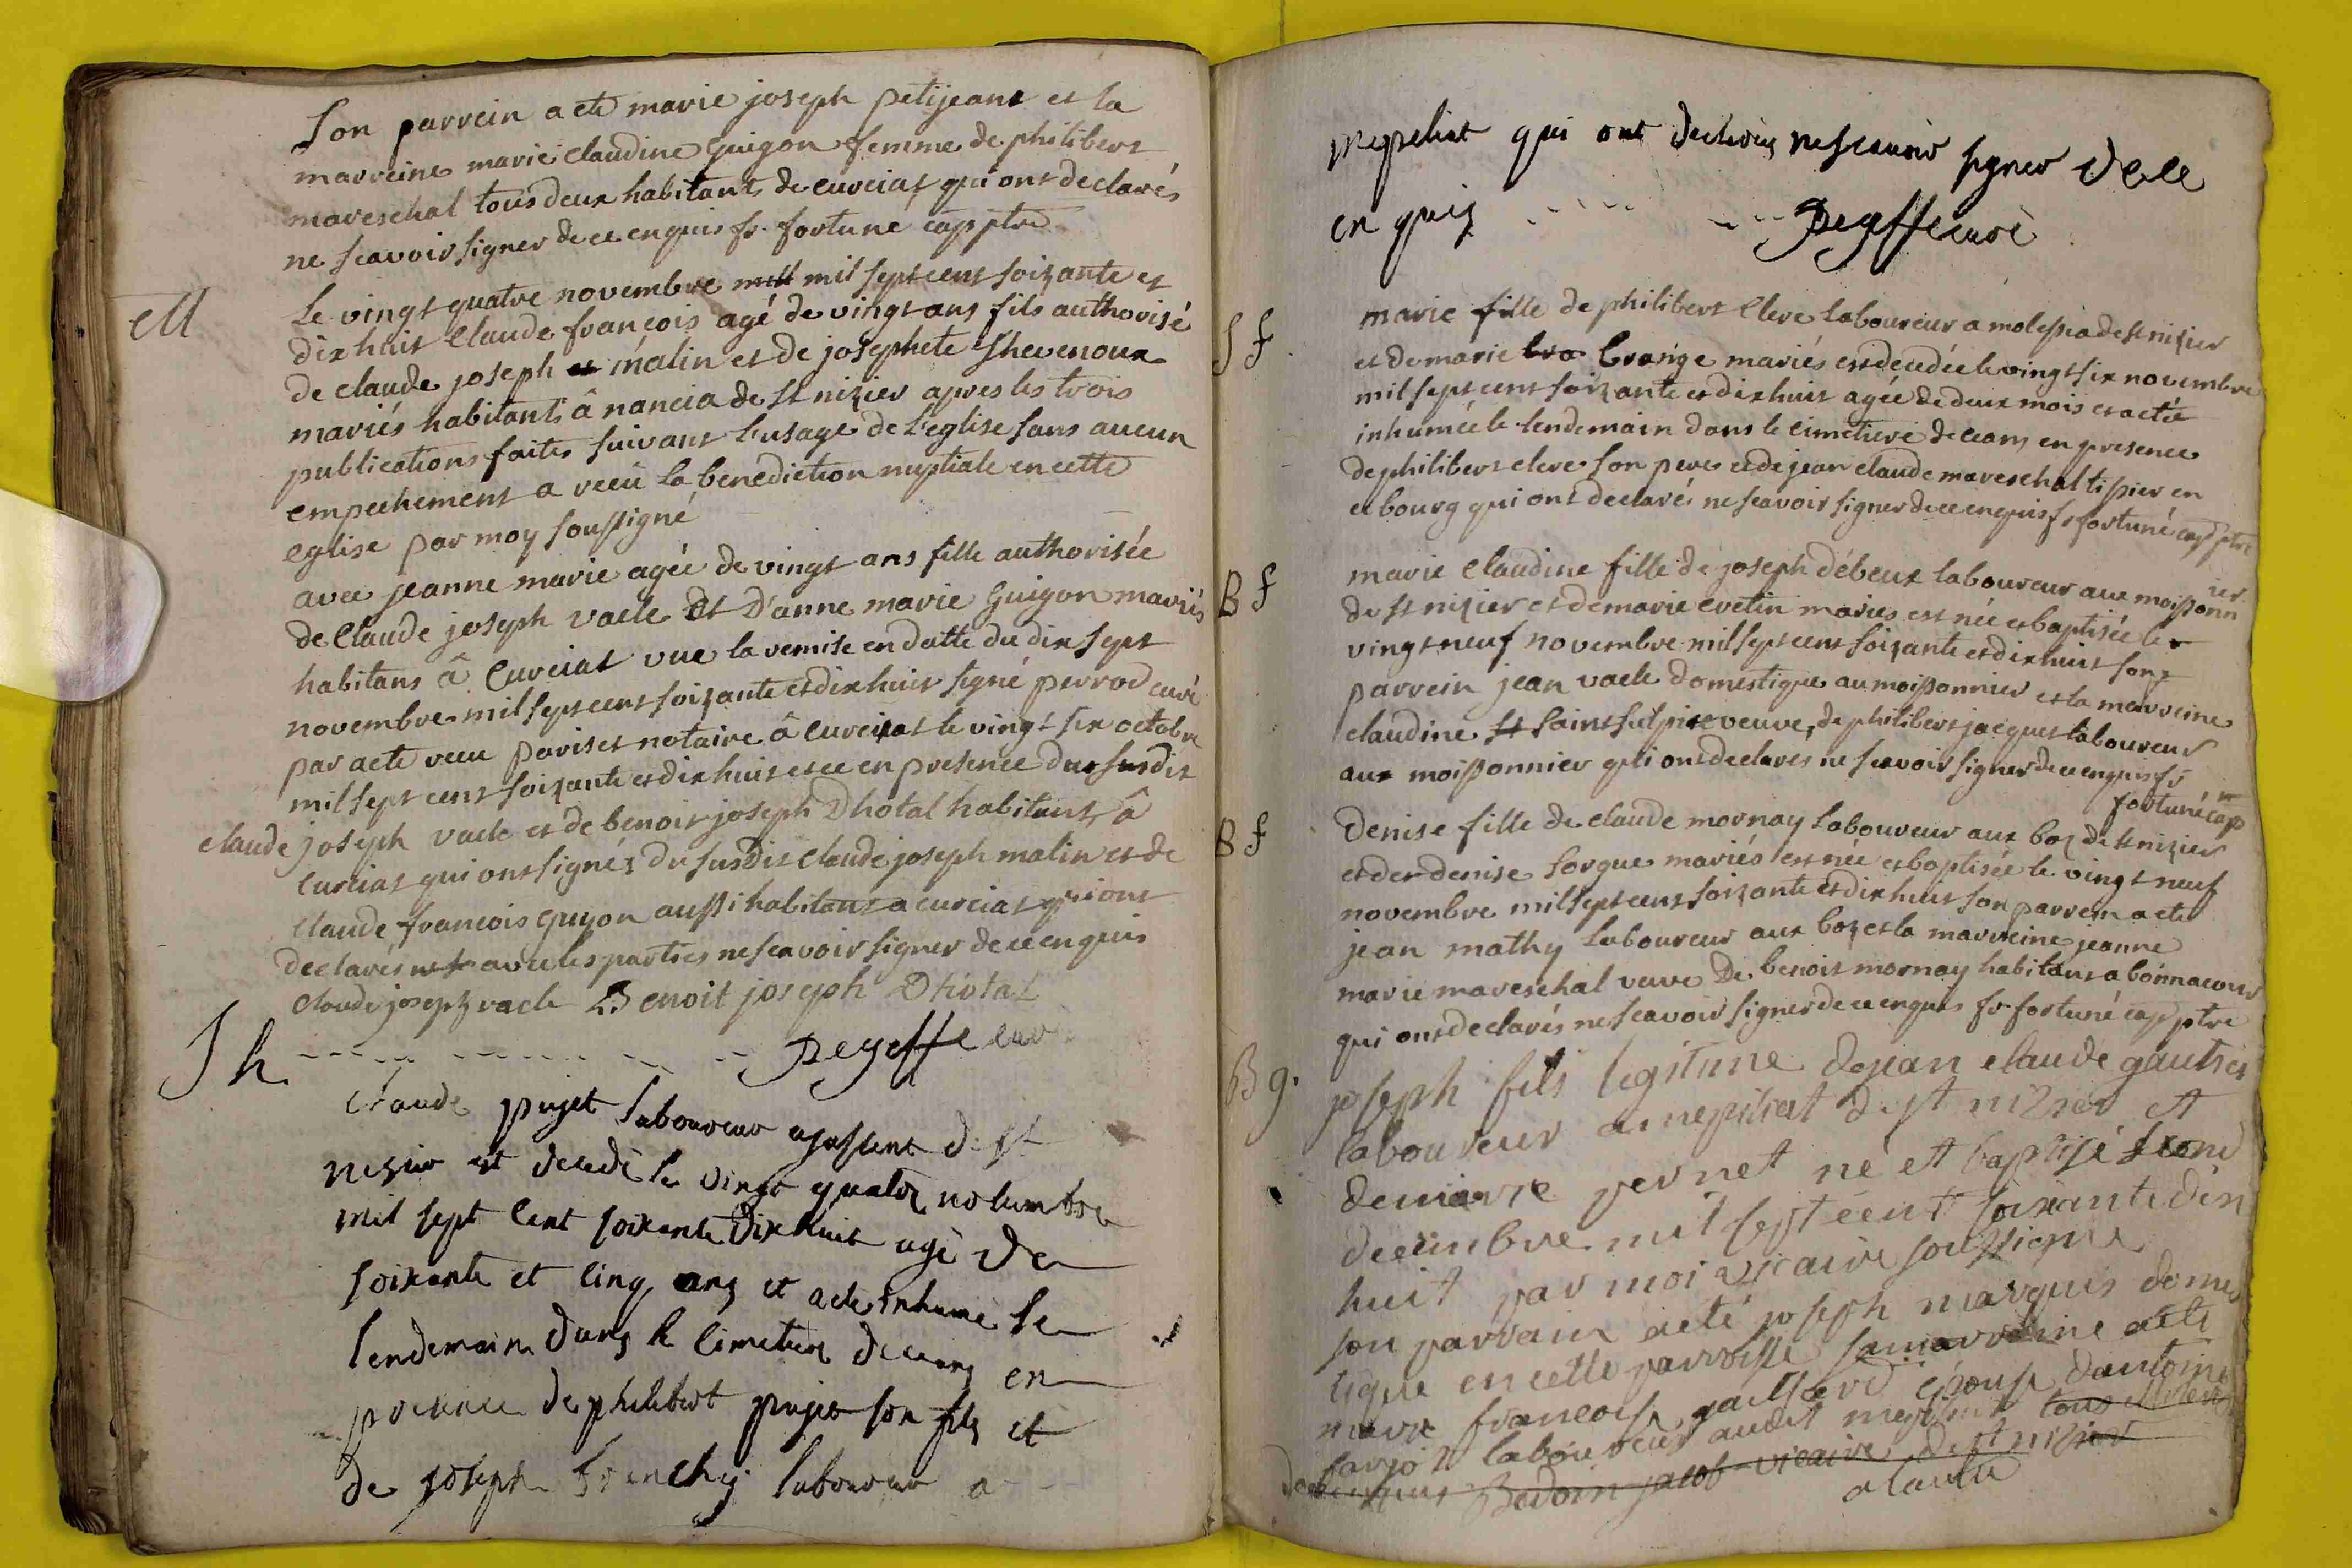 Son parrein a ete marie joseph petijeant et la
marreine marie claudine guigon femme de philibert
mareschal tous deux habitants de curciat qui ont declarés
ne scavoir signer de ce enquis fr. fortuné cap ptre
M
Le vingt quatre novembre mil sept cent soizante et
dix huit Claude françois agé de vingt ans fils authorisé
de claude joseph malin et de josephete Thevenoux
mariés habitants â nancia de st nizier apres les trois
publications faites suivant l'usage de l'eglise sans aucun
empechement a receu la benediction nuptiale en cette
eglise par moy soussigné
avec jeanne marie agée de vingt ans fille authorisée
de Claude joseph vacle et D'anne marie Guigon mariés
habitans â Curciat vue la remise en datte du dix sept
novembre mil sept cent soizante et dix huit signé perrod curé
par acte receu pariset notaire â curciat le vingt six octobre
mil sept cent soizante et dix huit et ce en presence du susdit
claude joseph vacle et de benoit joseph Dhotal habitans â
curciat qui ont signés du susdit Claude joseph malin et de
claude francois guyon aussi habitans a curciat qui ont
declarés avec les parties ne scavoir signer de ce enquis
claude joseph vacle Benoit joseph Dhotal
Sh
claude pujet laboureur de st
nezier est decedé le vingt quatre novembre
mil sept cent soixante dix huit agé de
soixante et cinq ans et a ete inhumé le
lendemain dans le cimetiere de ceans en
presence de philibert pujet son fils et
de joseph laboureur a
qui ont declarés ne scavoir signer de ce
enquis
Sf
marie fille de philibert Clere laboureur a molepia de st nizier
et de marie brange mariés est decedée le vingt six novembre
mil sept cent soizante et dix huit agée de deux mois et a eté
inhumée le lendemain dans le cimetiere de ceans en presence
de philibert clere son pere et de jean claude mareschal tissier en
ce bourg qui ont declarés ne scavoir signer de ce enquis fr fortuné cap ptre
Bf
marie Claudine fille de joseph débeux laboureur aux moissonn
ier
de st nizier et de marie cretin mariés est née et baptisée le
vingt neuf novembre mil sept cent soizante et dix huit son
parrein jean vacle domestique au moissonnier et la marreine
claudine saint sulpice veuve de philibert jacquet laboureur
aux moissonnier qui ont declarés ne scavoir signer de ce enquis fr
fortuné cap
Bf
Denise fille de claude mornay laboureur aux boz de st nizier
et de denise sorgue mariés est née et baptisée le vingt neuf
novembre mil sept cent soizante et dix huit son parrein a ete
jean mathy laboureur aux boz et la marreine jeanne
marie mareschal veuve de benoit mornay habitans a bonnacour
qui ont declarés ne scavoir signer de ce enquis fr fortuné cap ptre
Bg.
joseph fils legitime de jean claude gautier
laboureur a de st nizier et
de marie pernet né et baptisé
decembre mil sept cent soixante dix
huit par moi vicaire soussigné
son parrain a eté joseph marquis domes
tique en cette parroisse sa marraine a eté
marie francoise épouse dantoine
laboureur audit
Bedoin jacob vicaire de st nizier